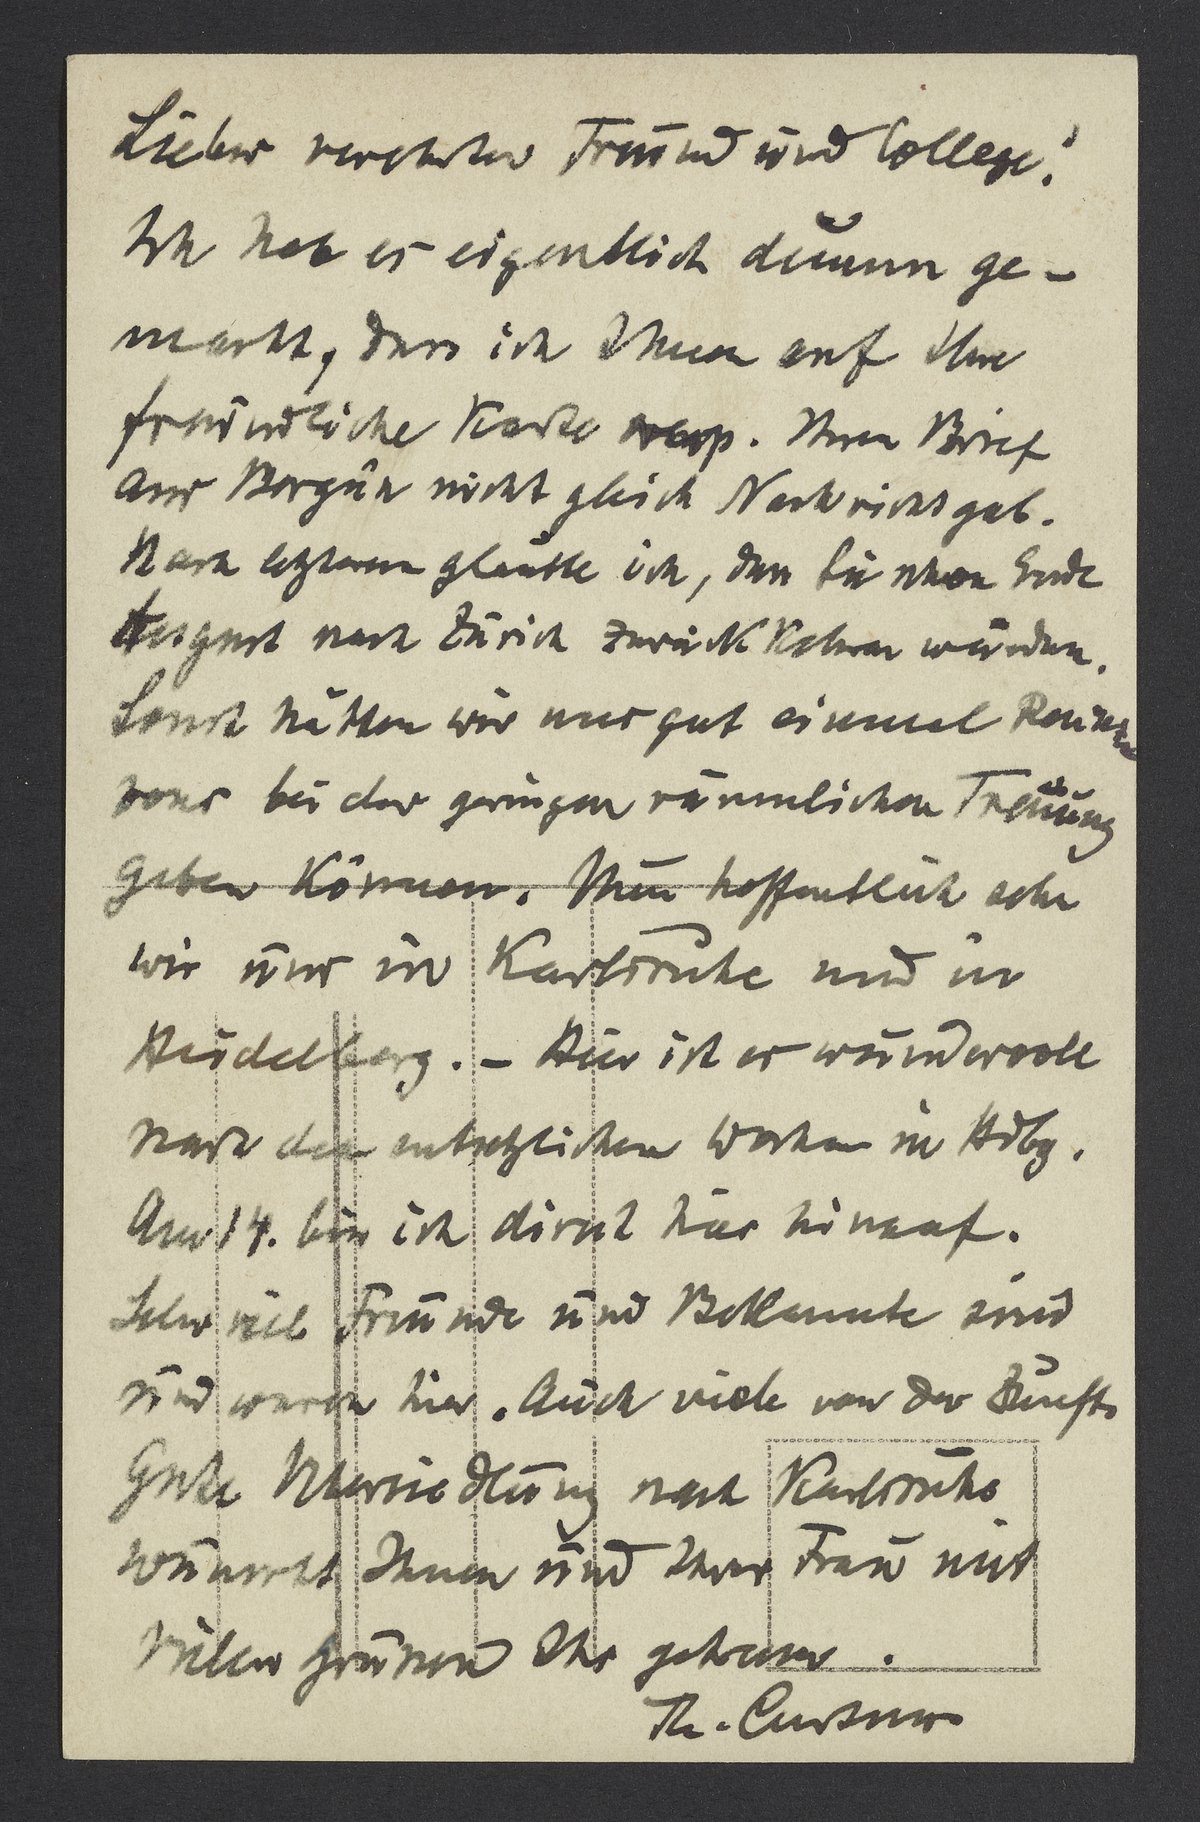 Lieber verehrter Freund und College!
Ich hab es eigentlich dumm ge-
macht, dass ich Ihnen auf Ihre
freundliche Karte resp. Ihren Brief
aus Bergün nicht gleich Nachricht gab.
Nach letzterem glaubte ich, dass Sie schon Ende
August nach Zürich zurückkehren würden.
Sonst hätten wir uns gut einmal Rendez
vous bei der geringen räumlichen Trennung
geben können. Nun hoffentlich sehn
wir uns in Karlsruhe und in
Heidelberg. – Hier ist es wundervoll
nach den entsetzlichen Wochen in Hdbg.
Am 14. bin ich direct hier hinauf.
Sehr viel Freunde und Bekannte sind
und waren hier. Auch viele von der Zunft.
Gute Übersiedlung nach Karlsruhe
wünscht Ihnen und Ihrer Frau mit
vielen Grüssen Ihr getreuer.
Th. Curtius